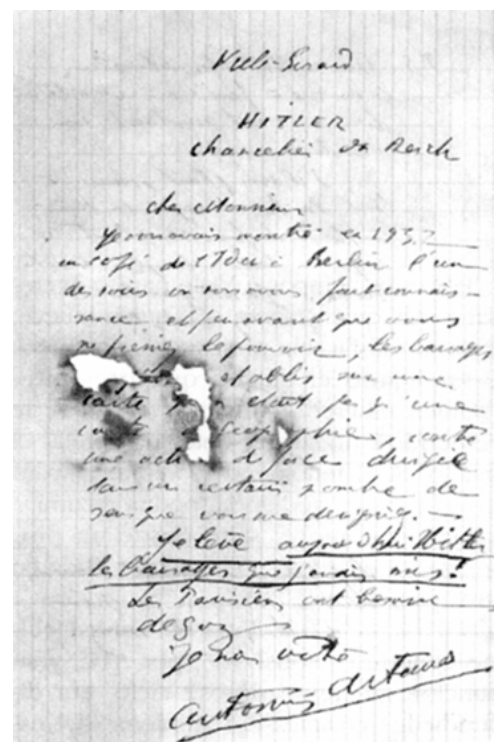 Ville-Evrard
HITLER
chancelier du Reich
cher Monsieur
Je vous avais montré en 1932
un café de l'Ider à Berlin l'un
des soirs où nous avons fait connais-
sance et peu avant que vous
ne preniez le pouvoir, les barrages
établis sur une
carte qui n'était pas une
carte géographie, contre
une action de force dirigée
dans un certain nombre de
sens que vous me désigniez. —
Je lève aujourd'hui Hitler
les barrages que j'avais mis!
Les Parisiens ont besoin
de gaz
Je suis votre
Antonin Artaud